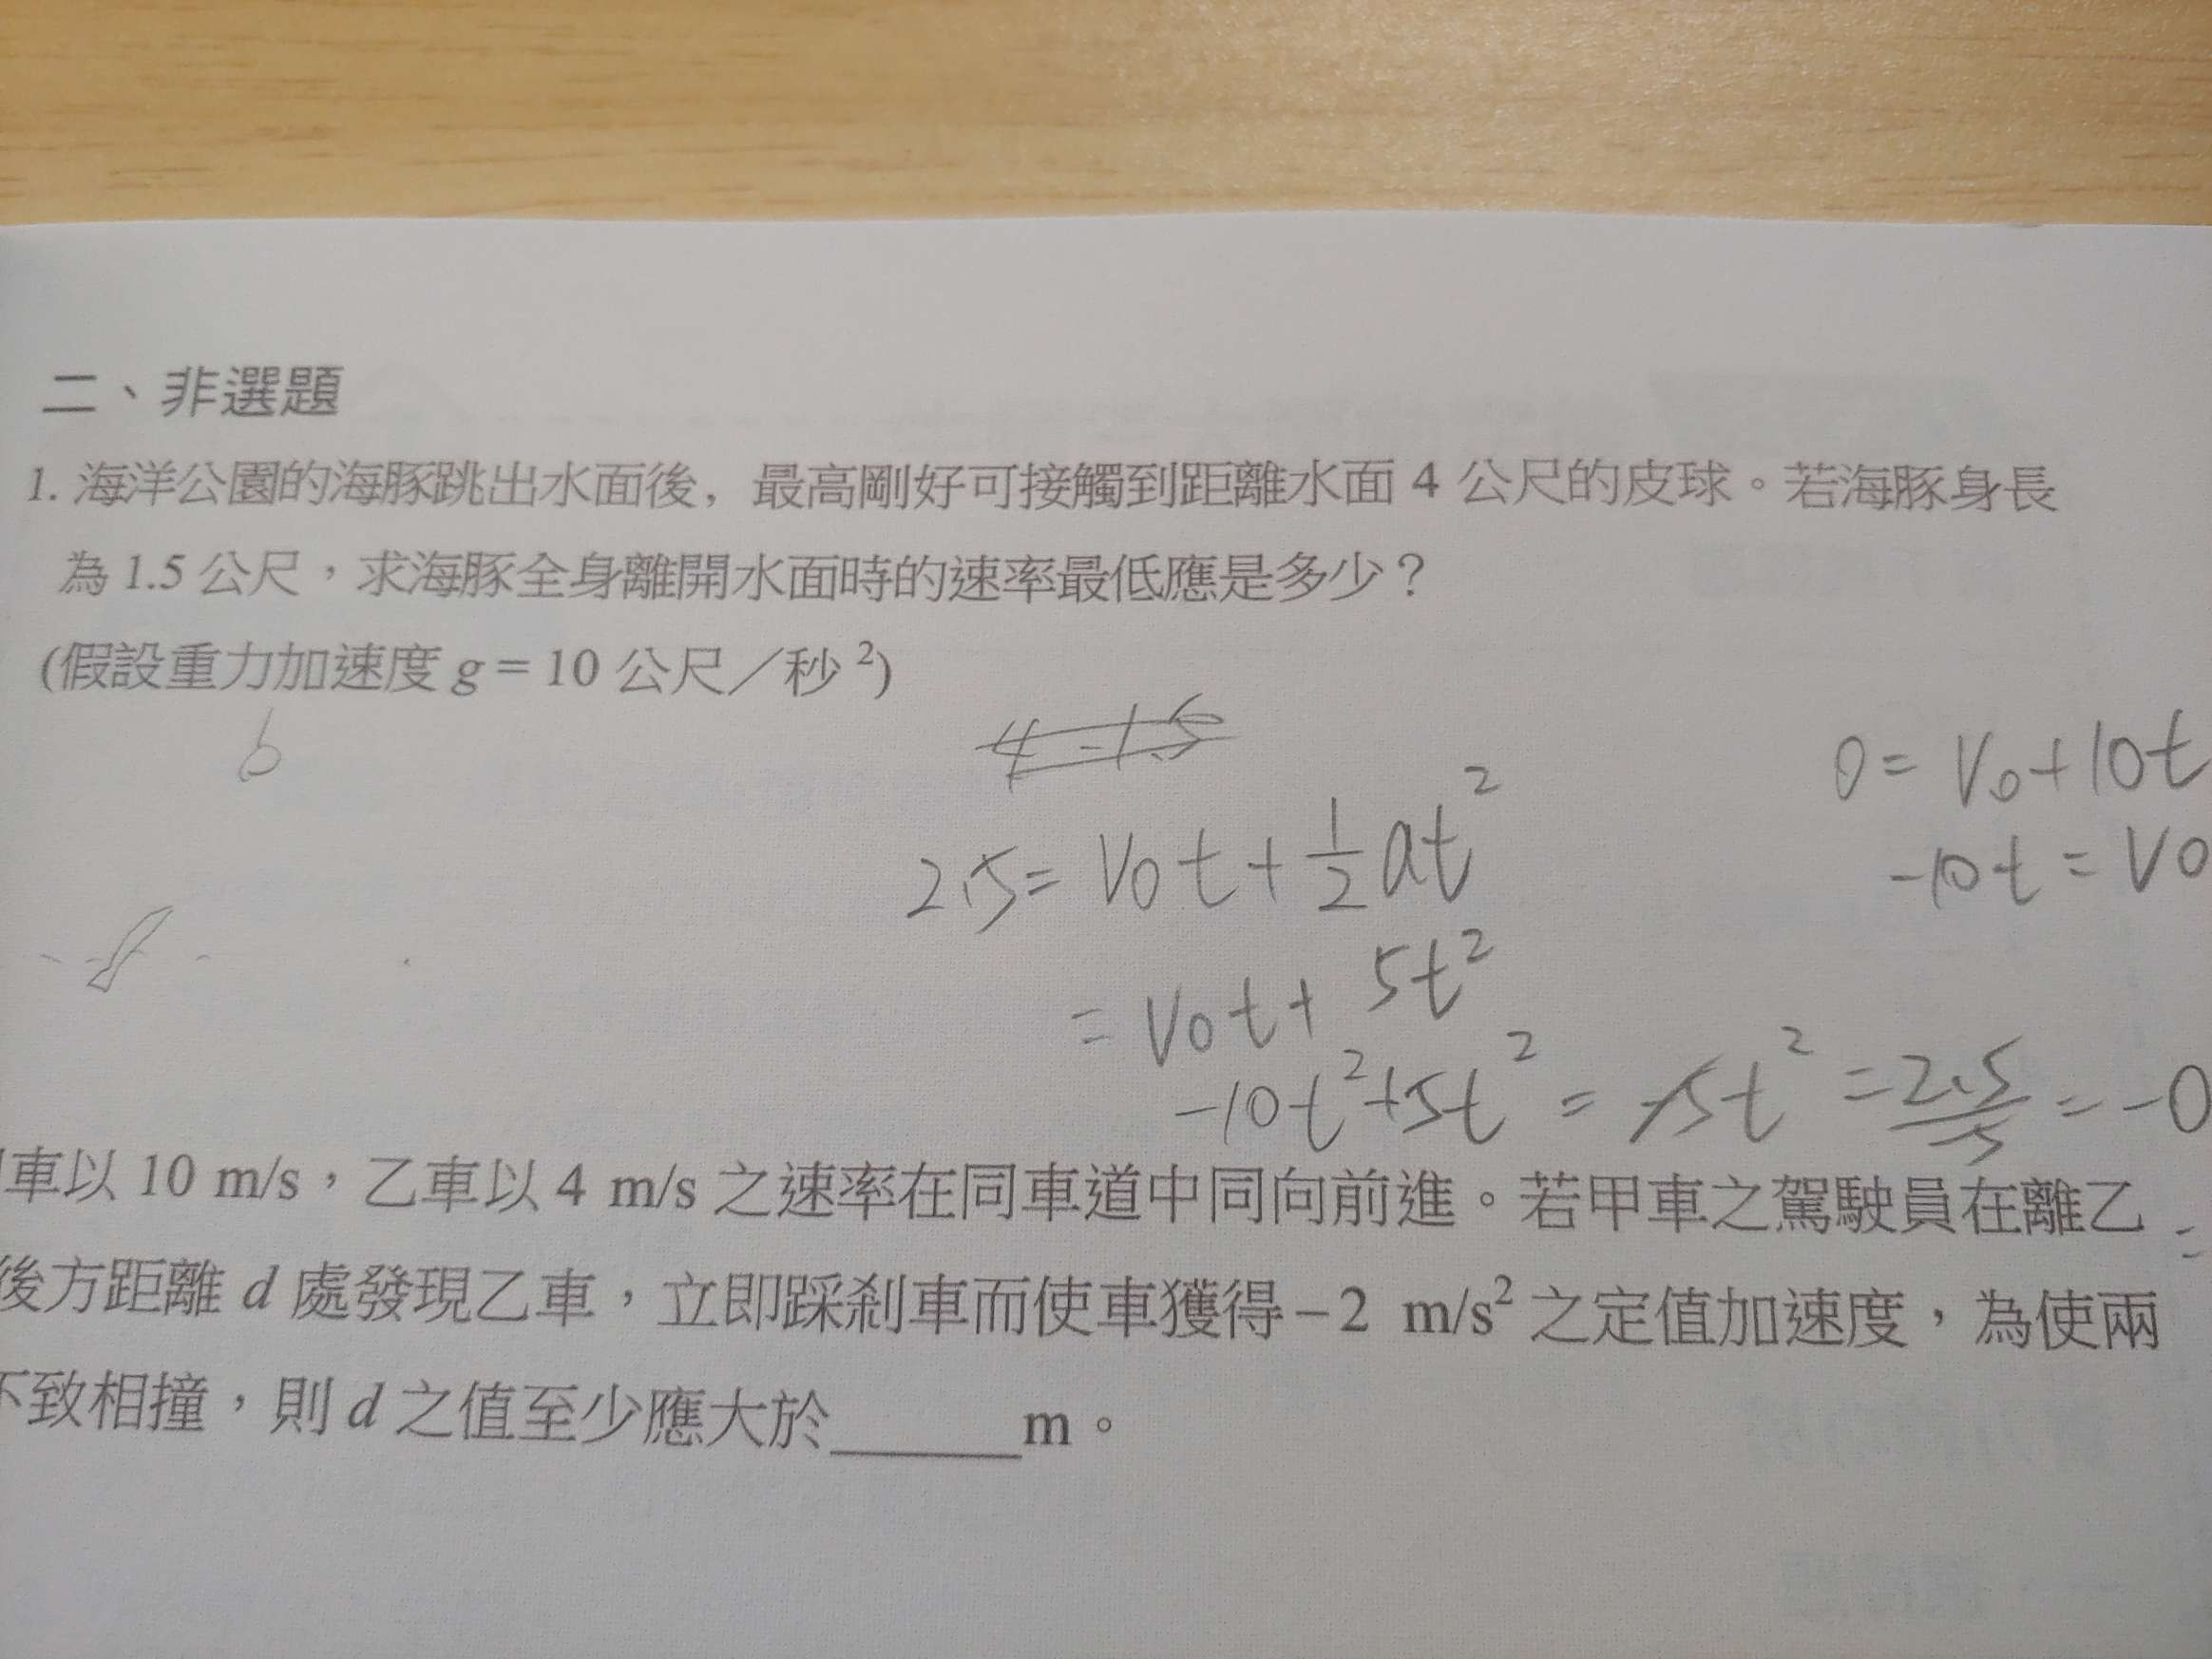 二、非選題
1. 海洋公園的海豚跳出水面後，最高剛好可接觸到距離水面 4 公尺的皮球。若海豚身長
為 1.5 公尺，求海豚全身離開水面時的速率最低應是多少？
(假設重力加速度 g = 10 公尺／秒²)
b
4-1.5
2.5 = V0t + ½at²
= V0t + 5t²
-10t² + 5t² = -5t² = 2.5/-5 = -0
0 = V0 + 10t
-10t = V0
車以 10 m/s，乙車以 4 m/s 之速率在同車道中同向前進。若甲車之駕駛員在離乙
後方距離 d 處發現乙車，立即踩剎車而使車獲得 – 2 m/s² 之定值加速度，為使兩
不致相撞，則 d 之值至少應大於______m。